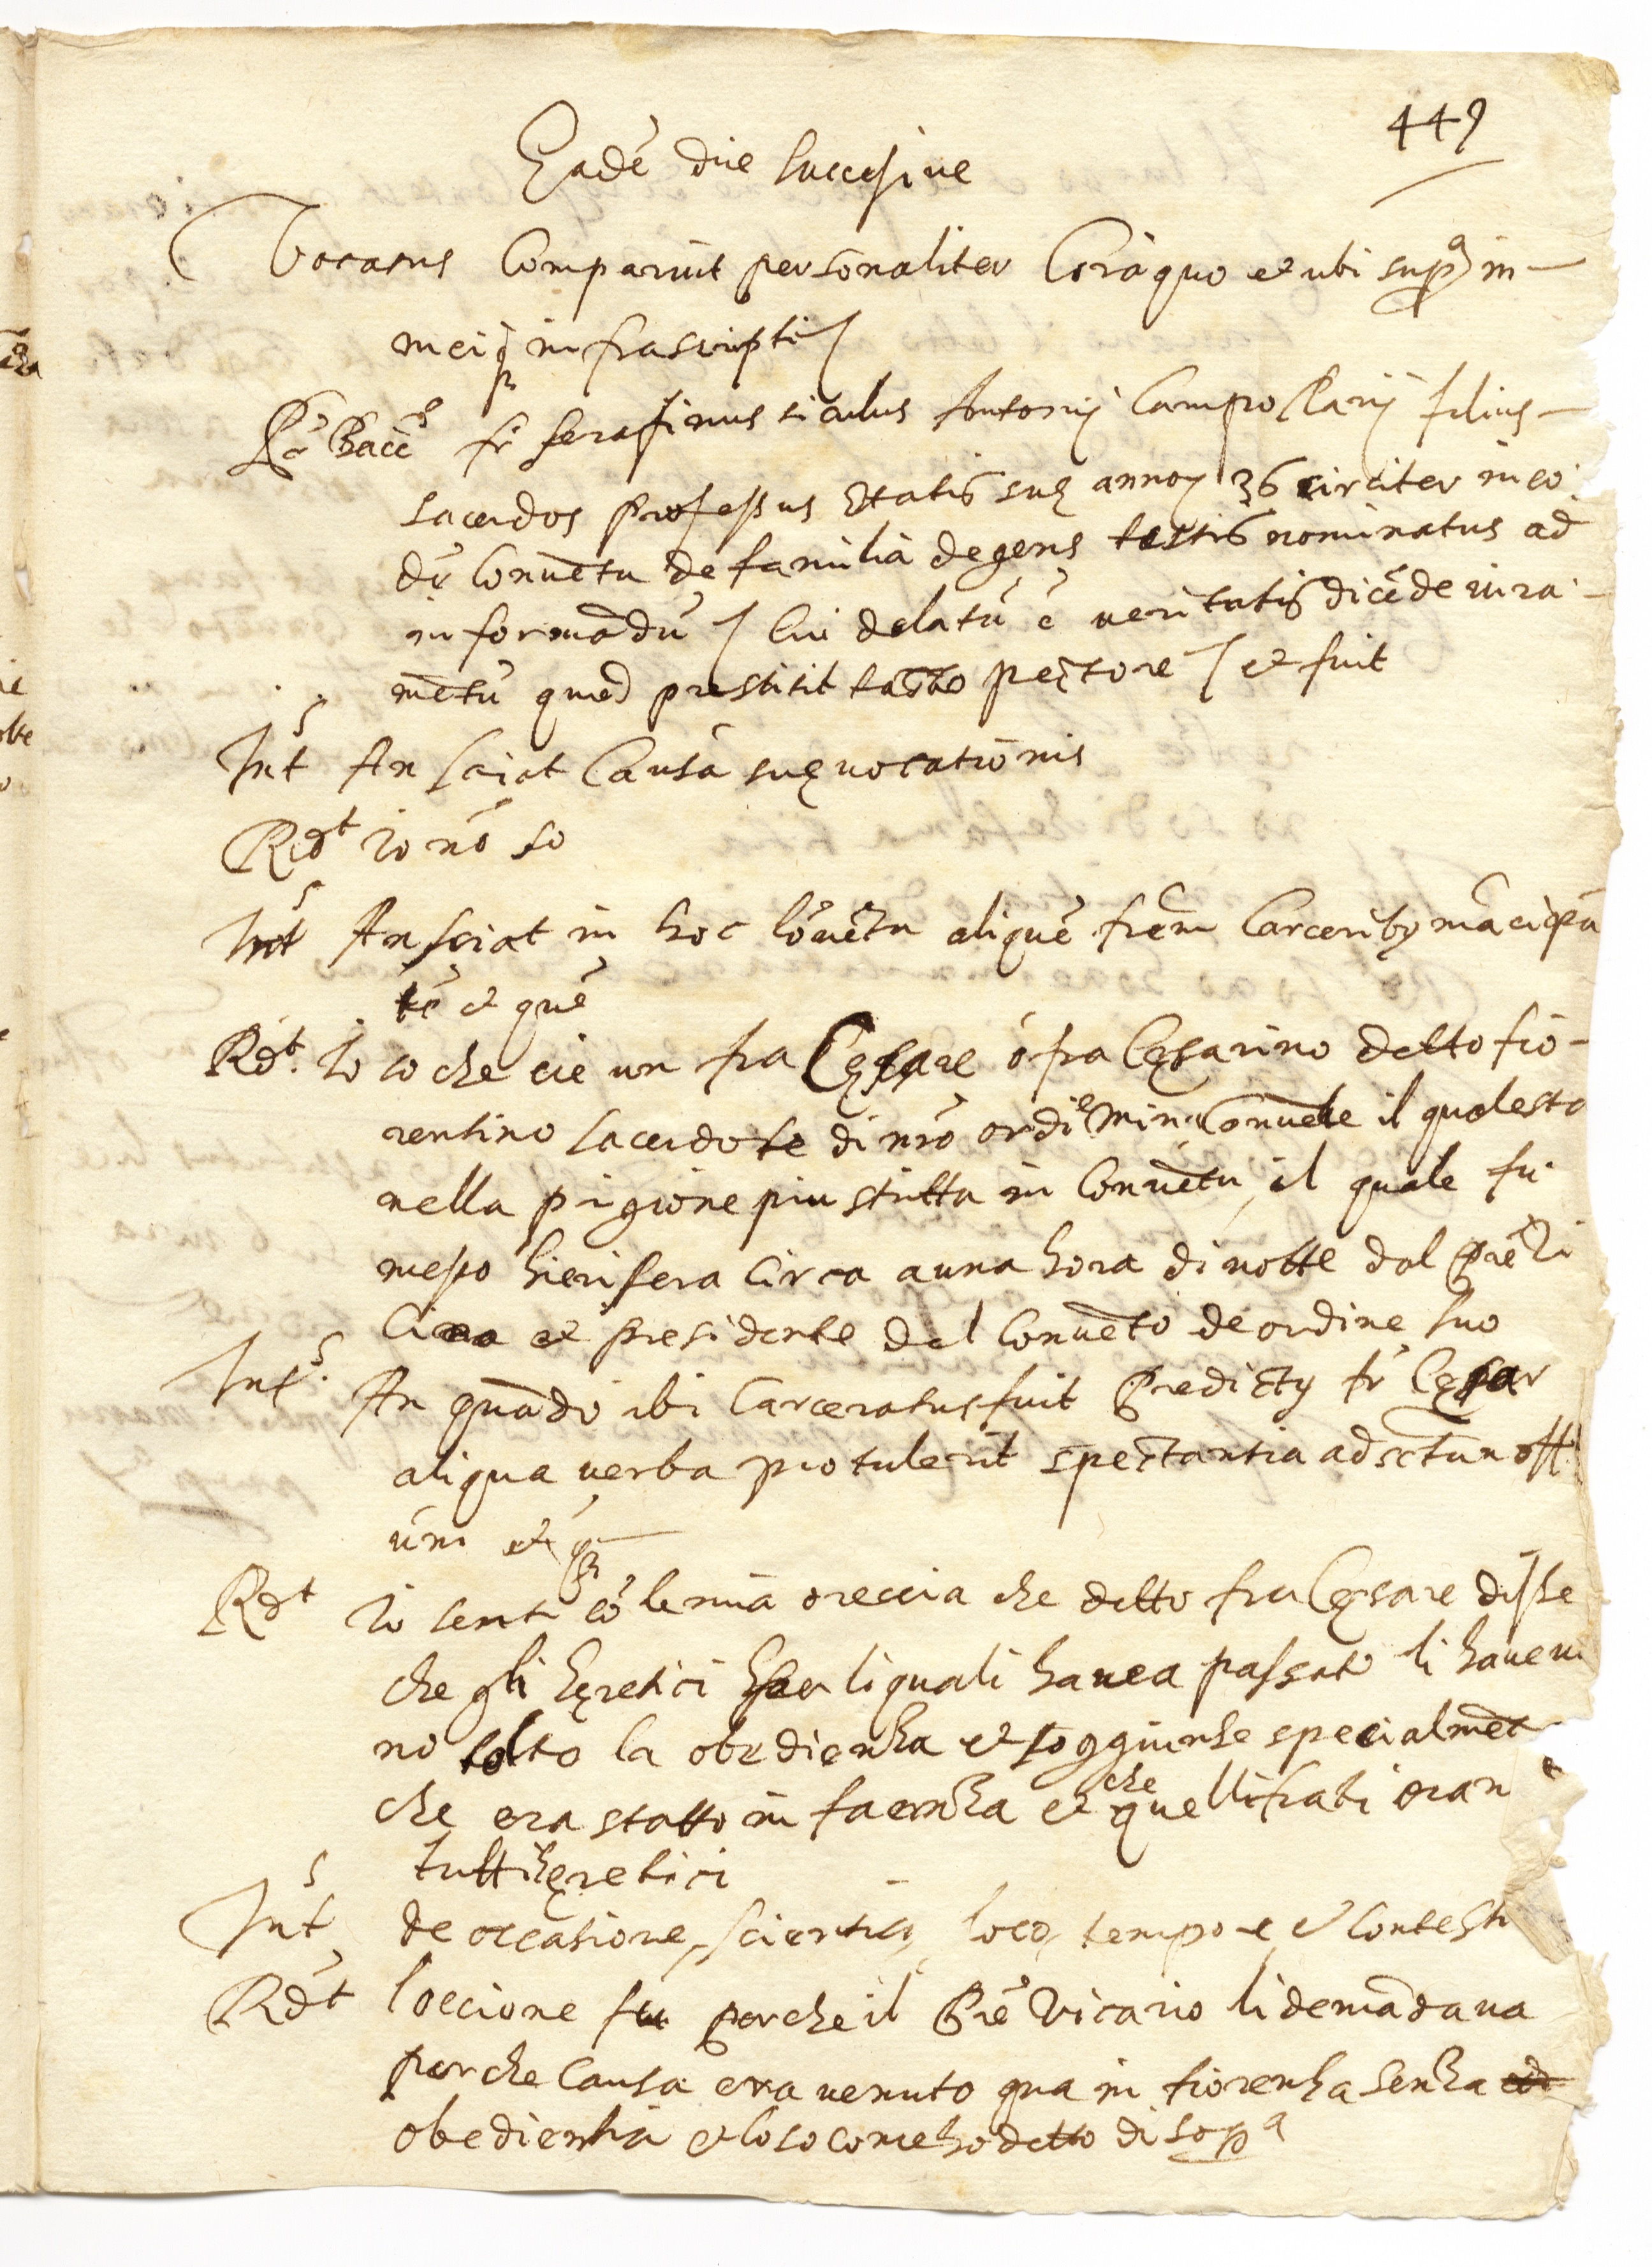 449
Eadē die successiue
Vocatus Comparuit personaliter Corā quo et ubi supª in
meiqȝ infrascripti
Rᵈ Baccˢ fr̄ serafinus siculus Antonij Campo Clarij filius
sacerdos professus Etatis suę annoȝ 36 circiter in eo
dē Conuētu de familia degens testis nominatus ad
informādū / Cui delatū ē ueritatis dicēde iura
mētū quod prestitit tacto pectore / et fuit
Intˢ An sciat Causā suę uocationis
Rdᵗ Io nō so
Intˢ An sciat in hoc Cōuētu aliquē frēm Carceribȝ mācipa
tū et quē
Rdᵗ. Io so che cie un fra Cęsare ó fra Cęsarino detto fio-
rentino sacerdote di nrō ordiᵉ Minʳ Conuētle il quale sta
nella prigione piu stretta in Conuētu, il quale fu
messo hierisera Circa a una hora di notte dal Prē Vi
Cario et presidente del Conuēto de ordine suo
Intˢ. An quādo ibi Carceratus fuit Predictȝ fr̄ Cęsar
aliqua uerba protulerit spectantia ad sctum offi
um et qȝ
Rdᵗ Io senti cō le mia oreccia che detto fra Cęsare disse
che gli hęretici per li quali hauea passato li haueui
no tolto la obedienza et soggiunse specialmēt
che era statto in faenza et che quelli frati eran
tutti hęretici
Intˢ de occasione, scientia, loco, tempore et contesti
Rdᵗ loccione fu perche il Prē Vicario li demādaua
perche Causa era uenuto qua in fiorenza senza
obedienza et lo so come ho detto di sopª